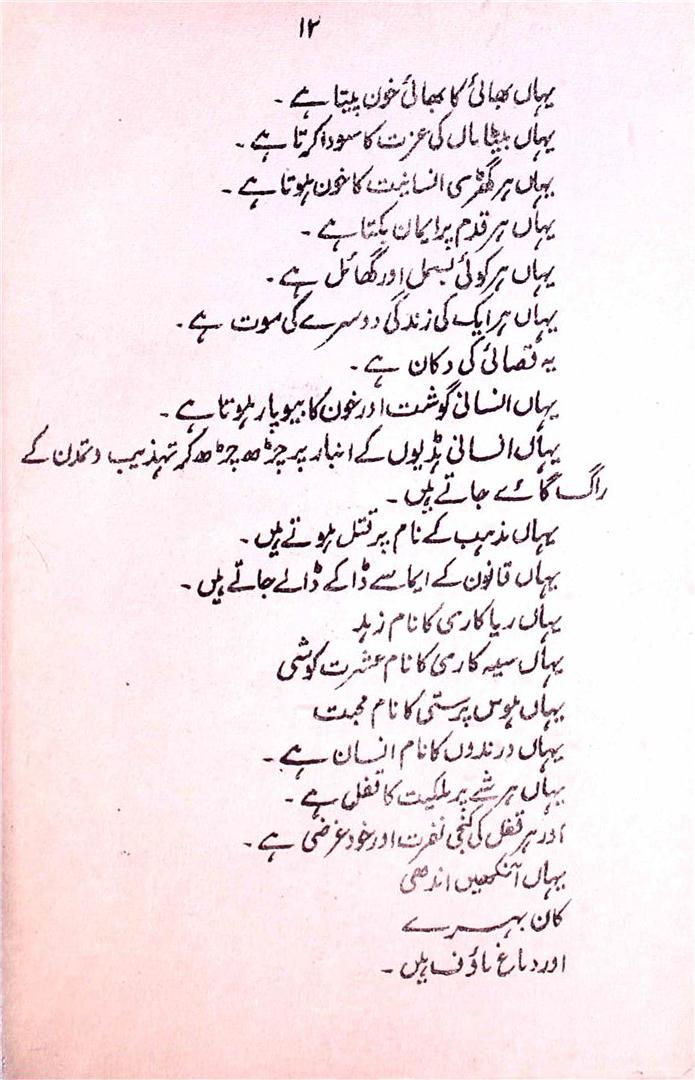 ۱۲
یہاں بھائی کا بھائی خون پیتا ہے ۔
یہاں بیٹا ماں کی عزت کا سودا کرتا ہے ۔
یہاں ہر گھڑی انسانیت کا خون ہوتا ہے ۔
یہاں ہر قدم پر ایمان بکتا ہے ۔
یہاں ہر کوئی بسمل اور گھائل ہے ۔
یہاں ہر ایک کی زندگی دوسرے کی موت ہے ۔
یہ قصائی کی دکان ہے ۔
یہاں انسانی گوشت اور خون کا بیوپار ہوتا ہے ۔
یہاں انسانی ہڈیوں کے انبار پر چڑھ چڑھ کر تہذیب و تمدن کے
راگ گائے جاتے ہیں ۔
یہاں مذہب کے نام پر قتل ہوتے ہیں ۔
یہاں قانون کے ایما سے ڈاکے ڈالے جاتے ہیں ۔
یہاں ریا کاری کا نام زہد
یہاں سیہ کاری کا نام عشرت کوشی
یہاں ہوس پرستی کا نام محبت
یہاں درندوں کا نام انسان ہے ۔
یہاں ہر شے پر ملکیت کا قفل ہے ۔
اور ہر قفل کی کنجی نفرت اور خود غرضی ہے ۔
یہاں آنکھیں اندھی
کان بہرے
اور دماغ ماؤف ہیں ۔